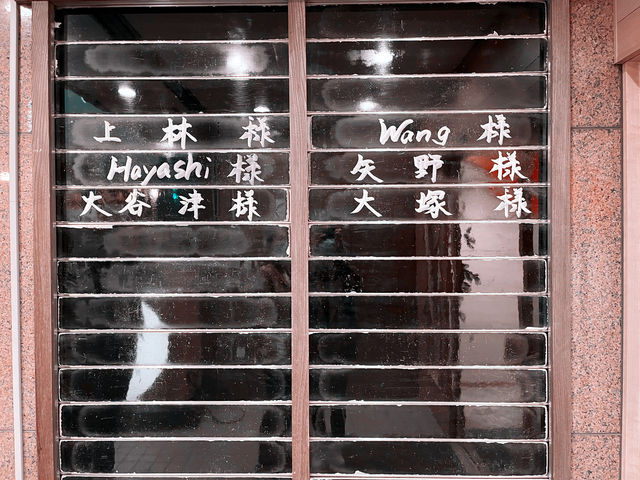 上林様
Hayashi様
大谷津様
Wang様
矢野様
大塚様